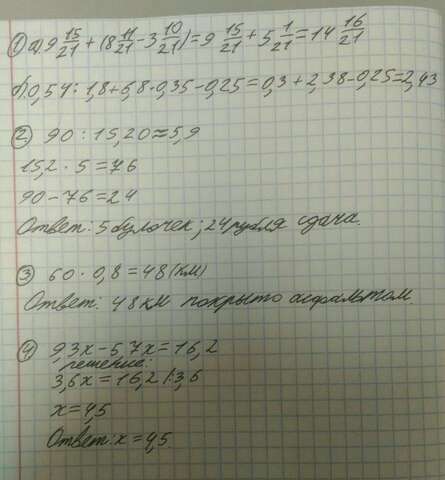 ① а) 9 15/21 + (8 11/21 - 3 10/21) = 9 15/21 + 5 1/21 = 14 16/21
б) 0,54 : 1,8 + 6,8 · 0,35 - 0,25 = 0,3 + 2,38 - 0,25 = 2,43
② 90 : 15,20 ≈ 5,9
15,2 · 5 = 76
90 - 76 = 24
Ответ: 5 булочек; 24 рубля сдача.
③ 60 · 0,8 = 48 (км)
Ответ: 48 км покрыто асфальтом.
④ 9,3x - 5,7x = 16,2
решение:
3,6x = 16,2 /: 3,6
x = 4,5
Ответ: x = 4,5